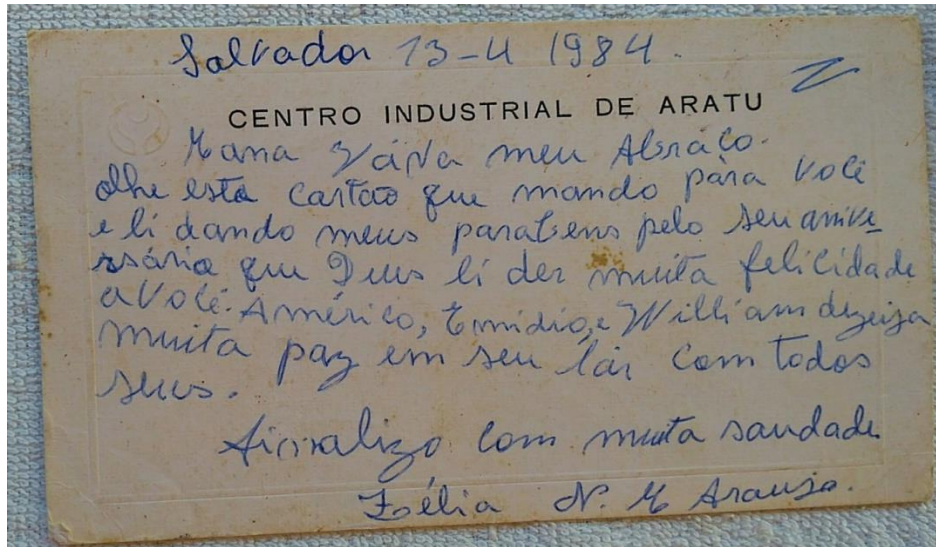 Salvador 13-4 1984.
CENTRO INDUSTRIAL DE ARATU
Mana meu Abraço.
olhe esta cartão que mando para você
e li dando meus parabens pelo seu anive_
rsário que Deus li der muita felicidade
a você. Américo, Emidio, e William dezeija
muita paz em seu lar com todos
seus.
finalizo com muita saudade
Zélia N. M Arauja.